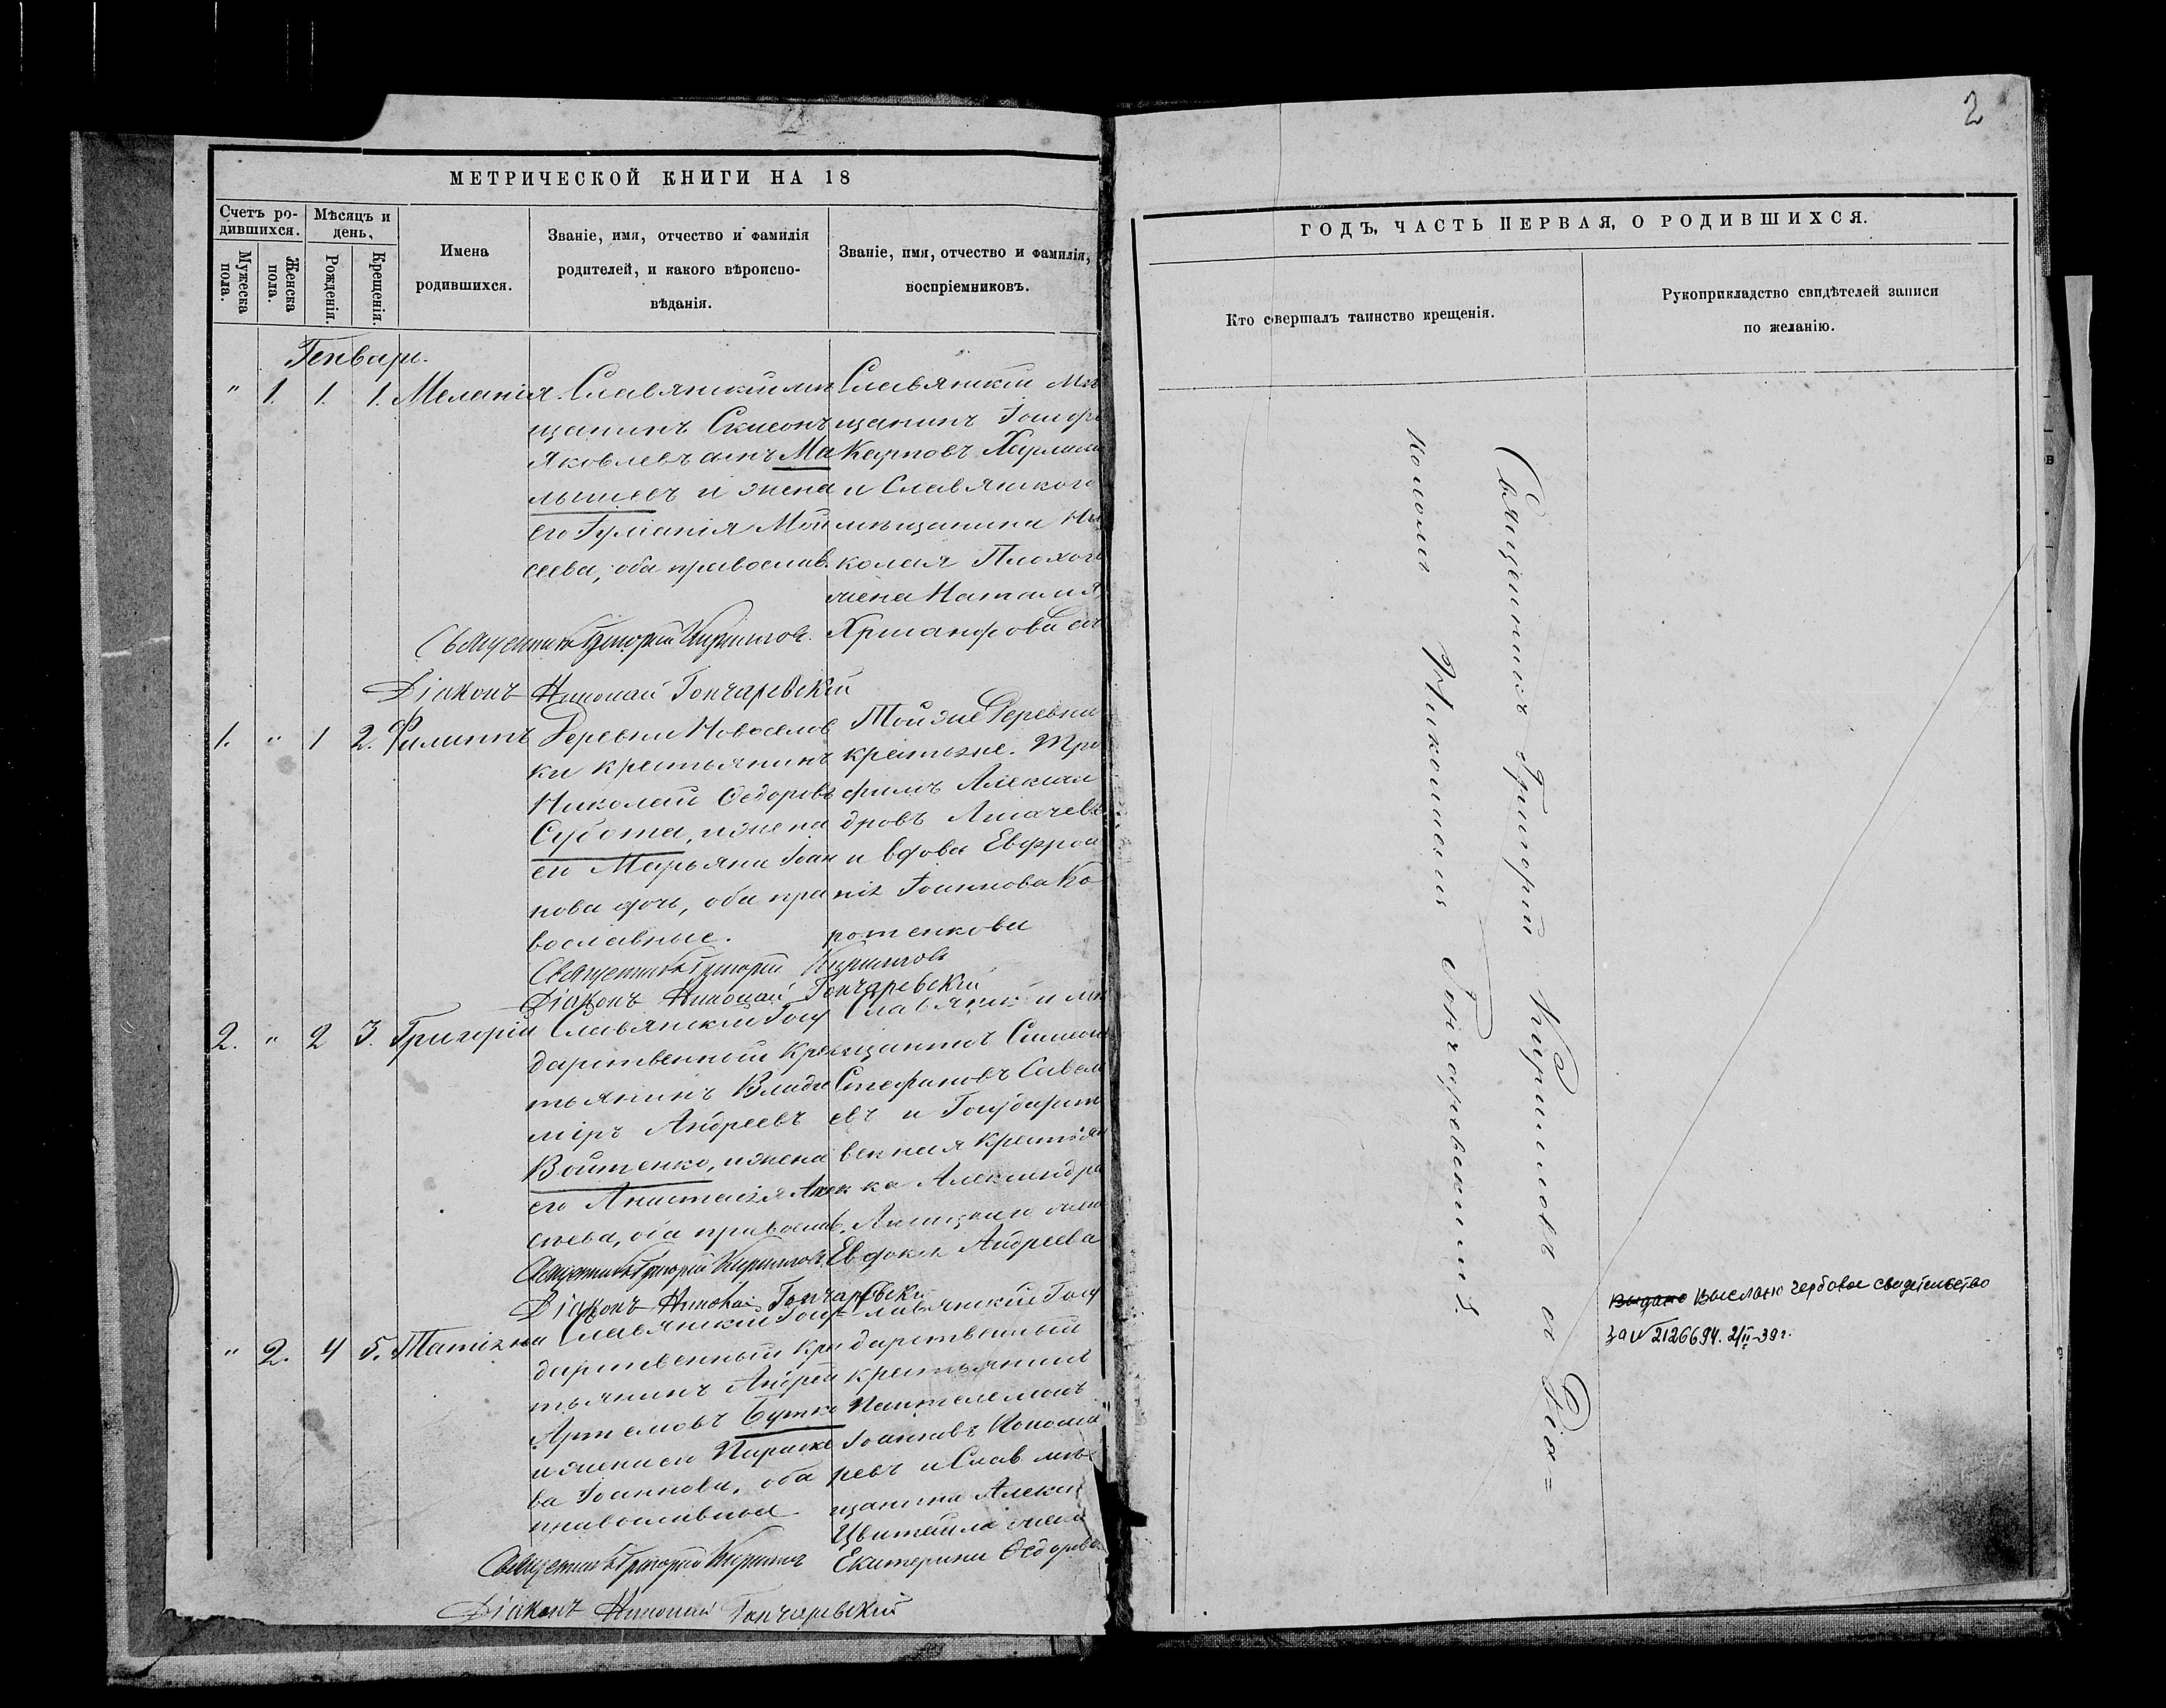 2
МЕТРИЧЕСКОЙ КНИГИ НА 18
Счетъ ро-
дившихся.
Мѣсяцъ и
день.
Мужеска
пола.
Женска
пола.
Рожденія.
Крещенія.
Имена
родившихся.
Званіе, имя, отчество и фамилія
родителей, и какого вѣроиспо-
вѣданія.
Званіе, имя, отчество и фамилія,
воспріемниковъ.
Генварь.
" 1. 1. 1. Меланія.
Славянскій мѣ
щанинъ Симеонъ
Яковлевъ сынъ Ма
лышевъ и жена
его Іуліанія Мои
сеева, оба православ.
Славянскій мѣ
щанинъ
Карповъ
и Славянского
мѣщанина Ни
колая Плохого
жена Наталія
Священникъ Григорій Кирилловъ.
Діаконъ Николай Гончаревскій
1. " 1 2. Филиппъ
Деревни Новоселов
ки крестьянинъ
Николай Ѳедоровъ
Субота, и жена
его Марьяна Іоан
нова дочь, оба пра
вославные.
Той же деревни
крестьяне. Тро
фимъ Алексан
дровъ Лихачевъ
и вдова Евфроси
нія Іоаннова Ко
ротенкова
Священникъ Григорій Кирилловъ
Діаконъ Николай Гончаревскій
2. " 2 3. Григорій
Славянскій Госу
дарственный крес
тьянинъ Влади
міръ Андреевъ
Войтенко, и жена
его Анастасія Алек
сѣева, оба православ.
Славянскій мѣ
щанинъ Симеонъ
Стефановъ Савель
евъ и Государст
венная крестьян
ка Александра
жена
Евдокія Андреева
Священникъ Григорій Кирилловъ
Діаконъ Николай Гончаревскій
" 2. 4 5. Татіана
Славянскій Госу
дарственный крес
тьянинъ Андрей
Артемовъ Бутко
и жена его Параске
ва Іоаннова, оба
православные
Славянскій Госу
дарственный
крестьянинъ
Пантелемонъ
Іоанновъ Пономо
ревъ и Слав мѣ
щанина Алексѣя
жена
Екатерина Ѳедорова
Священникъ Григорій Кирилловъ
Діаконъ Николай Гончаревскій
2
ГОДЪ, ЧАСТЬ ПЕРВАЯ, О РОДИВШИХСЯ.
Кто совершалъ таинство крещенія.
Рукоприкладство свидѣтелей записи
по желанію.
Священникъ Григорій Кирилловъ съ Діа=
кономъ Николаемъ Гончаревскимъ.
Выдано Выслано гербовое свидетельство
за № 2126694. 2/II-39 г.